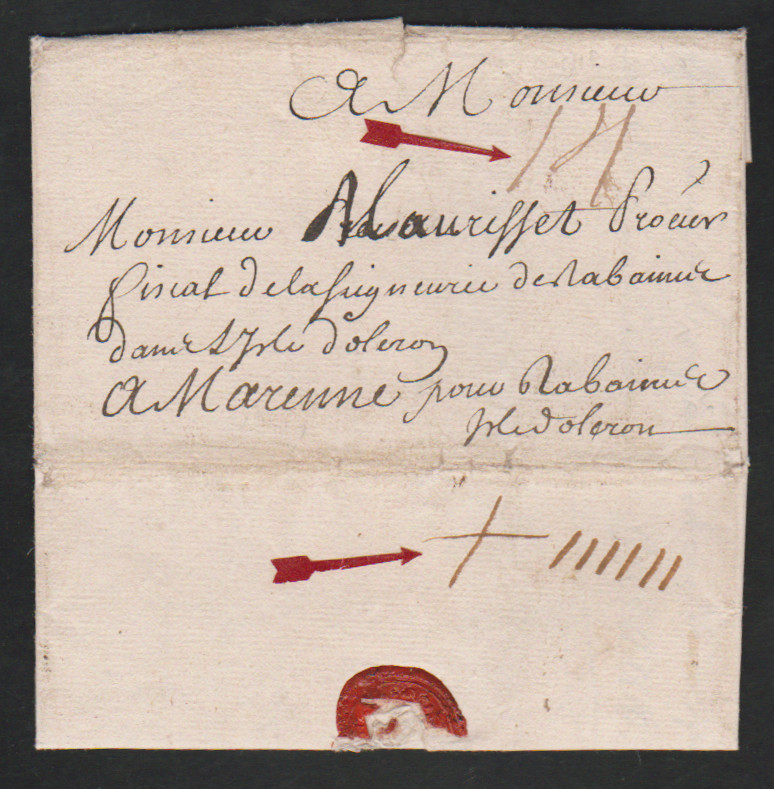 A Monsieur
14
Monsieur Maurisset Procur
fiscal de la seigneurie de Rabainne
dans L'Isle d'oleron
A Marenne pour Rabainne
Isle d'oleron
+ //////